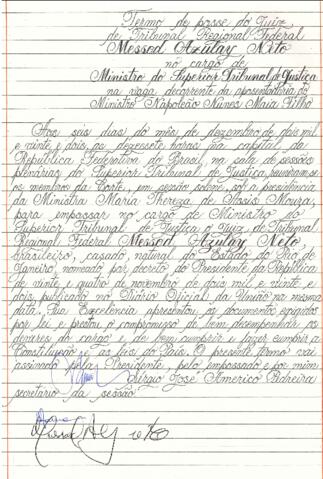 Termo de posse do Juiz
de Tribunal Regional Federal
Messod Azulay Neto
no cargo de
Ministro do Superior Tribunal de Justiça
na vaga decorrente da aposentadoria do
Ministro Napoleão Nunes Maia Filho
Aos seis dias do mês de dezembro de dois mil
e vinte e dois, às dezessete horas, na capital da
República Federativa do Brasil, na sala de sessões
plenárias do Superior Tribunal de Justiça, reuniram-se
os membros da Corte, em sessão solene, sob a presidência
da Ministra Maria Thereza de Assis Moura,
para empossar no cargo de Ministro do
Superior Tribunal de Justiça o Juiz de Tribunal
Regional Federal Messod Azulay Neto,
brasileiro, casado, natural do Estado do Rio de
Janeiro, nomeado por decreto do Presidente da República
de vinte e quatro de novembro de dois mil e vinte e
dois, publicado no Diário Oficial da União na mesma
data. Sua Excelência apresentou os documentos exigidos
por lei e prestou o compromisso de bem desempenhar os
deveres do cargo e de bem cumprir e fazer cumprir a
Constituição e as leis do País. O presente termo vai
assinado pela Presidente, pelo empossado e por mim
Sérgio José Américo Pedreira
secretário da sessão.